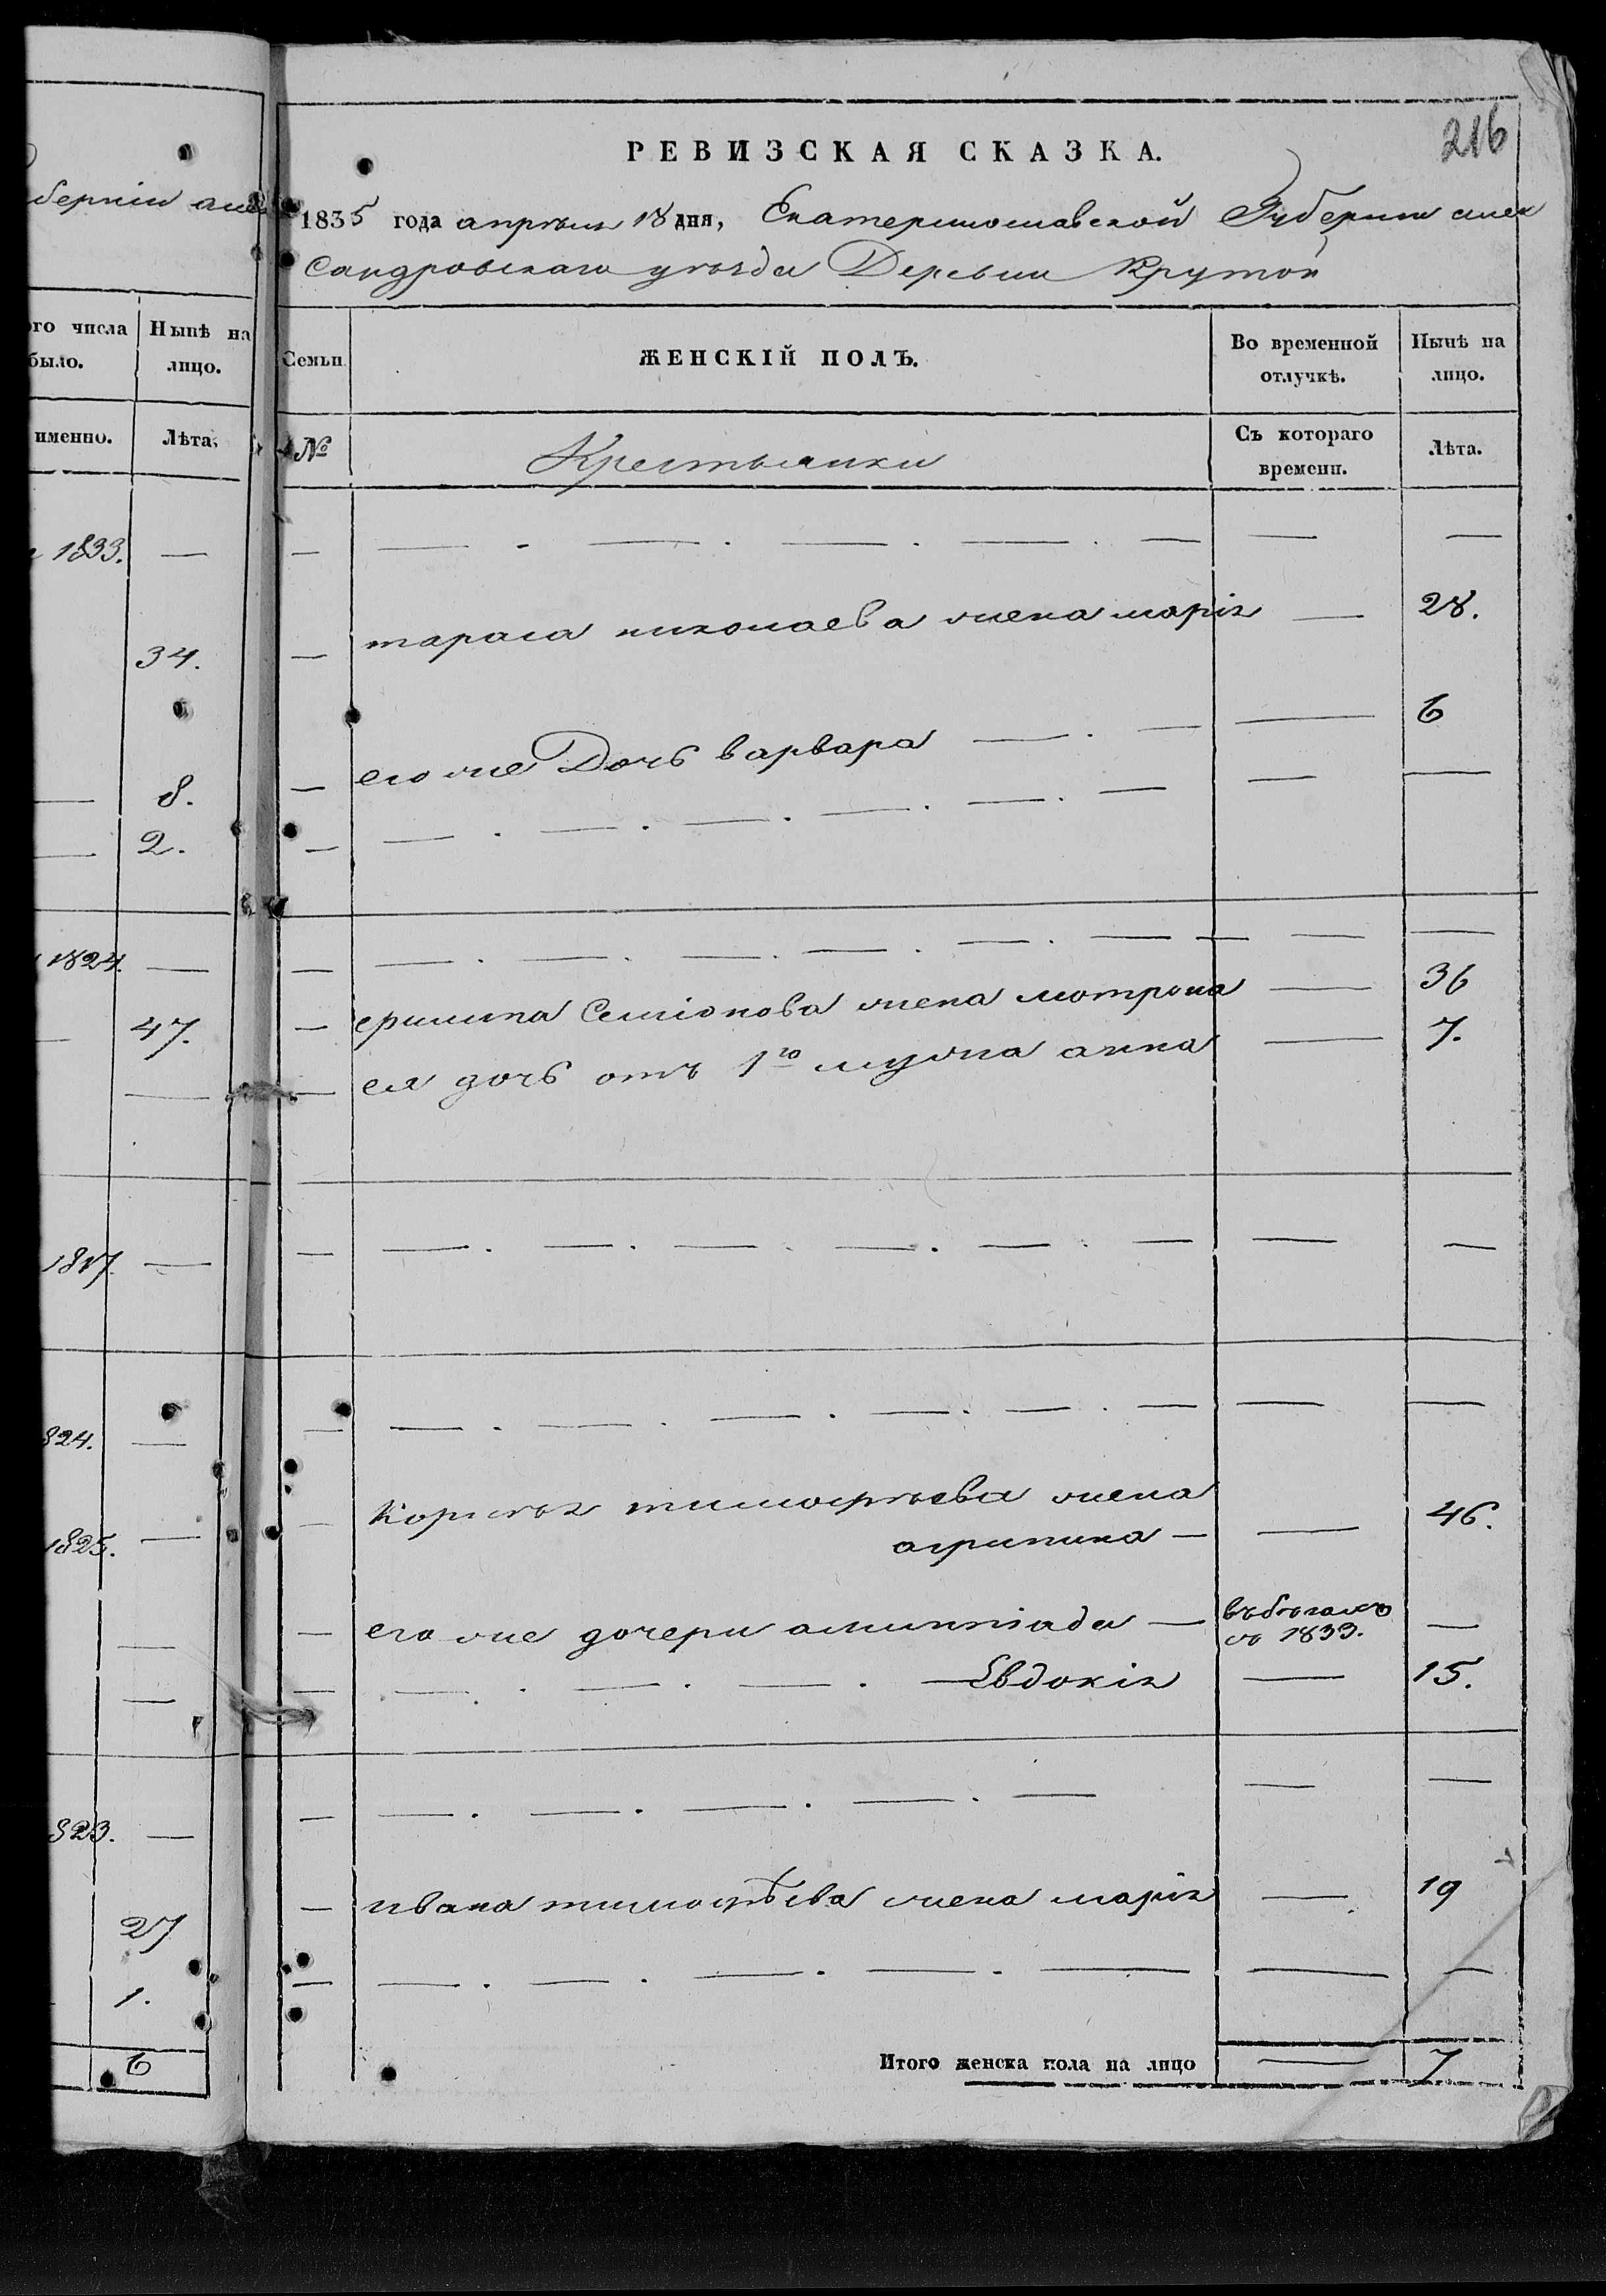 216
РЕВИЗСКАЯ СКАЗКА.
1835 года апреля 18 дня, Екатеринославской Губернии алек
сандровскаго уезда Деревни Крутой
Семьи
ЖЕНСКІЙ ПОЛЪ.
Во временной отлучкѣ.
Нынѣ на лицо.
№
Крестьянки
Съ котораго времени.
Лѣта.
— — . — . — . — . — — —
— тараса николаева жена марія — 28.
— его же Дочь варвара — . — — 6
— — . — . — . — . — . — — —
— — . — . — . — . — . — — — —
— Семіонова жена мотрона — 36
— ея дочь отъ 1го мужа анна — 7.
— — . — . — . — . — . — — —
— — . — . — . — . — . — — —
— тимофѣева жена
агрипина — — 46.
— его же дочери — въ бѣгахъ
съ 1833. —
— — . — . — . — Евдокія — 15.
— — . — . — . — . — — —
— ивана тимофѣева жена марія — 19
— — . — . — . — . — — —
Итого женска пола на лицо — 7
берніи алек
ого числа
было.
Нынѣ на
лицо.
именно.
Лѣта.
1833. —
34.
— 8.
— 2.
1824. —
— 47.
—
1817. —
824. —
1825. —
—
—
823. —
27
1.
6